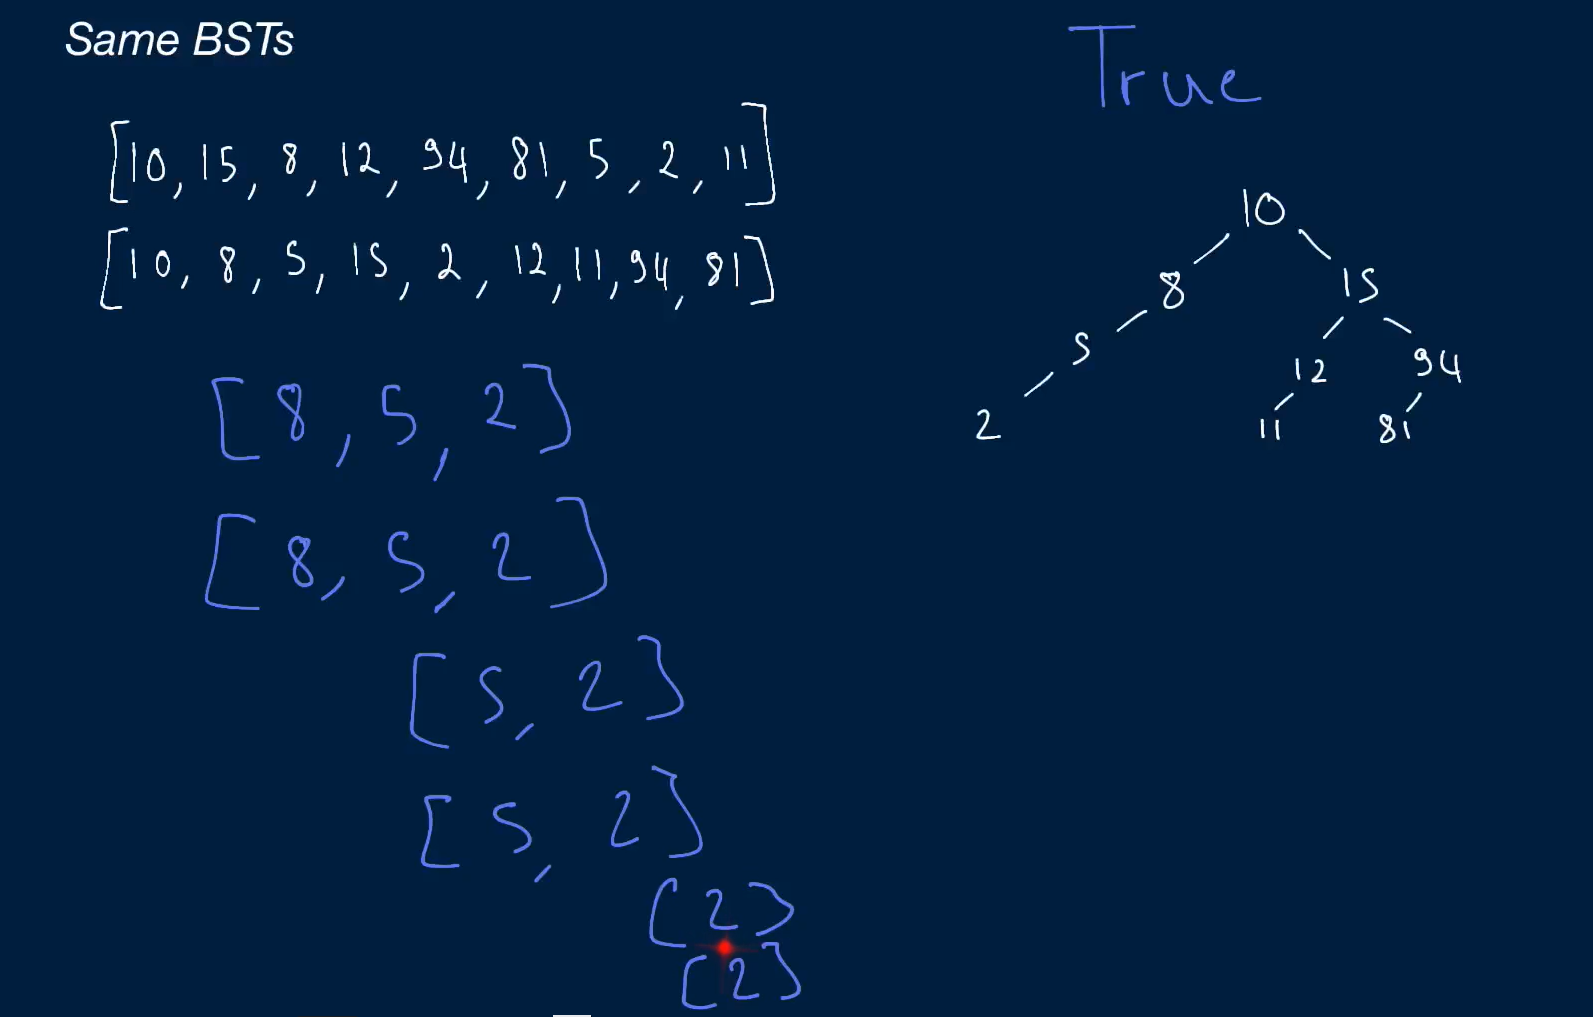 Same BSTs
True
[10, 15, 8, 12, 94, 81, 5, 2, 11]
[10, 8, 5, 15, 2, 12, 11, 94, 81]
[8, 5, 2]
[8, 5, 2]
[5, 2]
[5, 2]
[2]
[2]
10
8 15
5 12 94
2 11 81